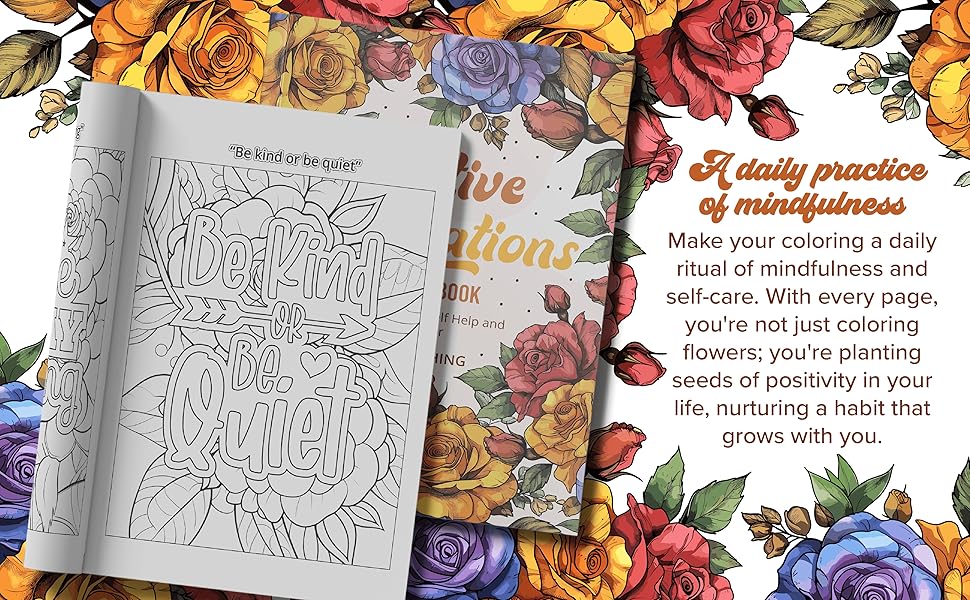 "Be kind or be quiet"
Be Kind
OR
Be
Quiet
BOOK
Help and
A daily practice
of mindfulness
Make your coloring a daily
ritual of mindfulness and
self-care. With every page,
you're not just coloring
flowers; you're planting
seeds of positivity in your
life, nurturing a habit that
grows with you.